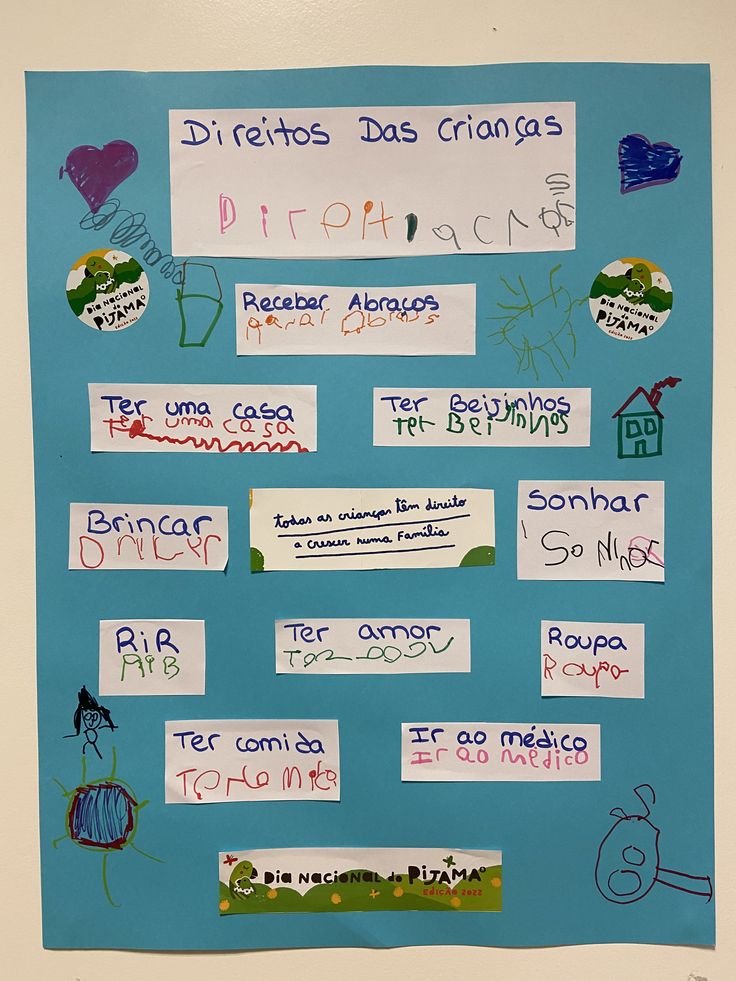 Direitos Das Crianças
DIA NACIONAL do PIJAMA
EDIÇÃO 2022
Receber Abraços
DIA NACIONAL do PIJAMA
EDIÇÃO 2022
Ter uma casa
Ter uma casa
Ter Beijinhos
Ter Beijinhos
Brincar
todas as crianças têm direito
a crescer numa Família
Sonhar
RiR
RiB
Ter amor
Roupa
Roupa
Ter comida
Ir ao médico
Ir ao médico
DIA NACIONAL do PIJAMA
EDIÇÃO 2022